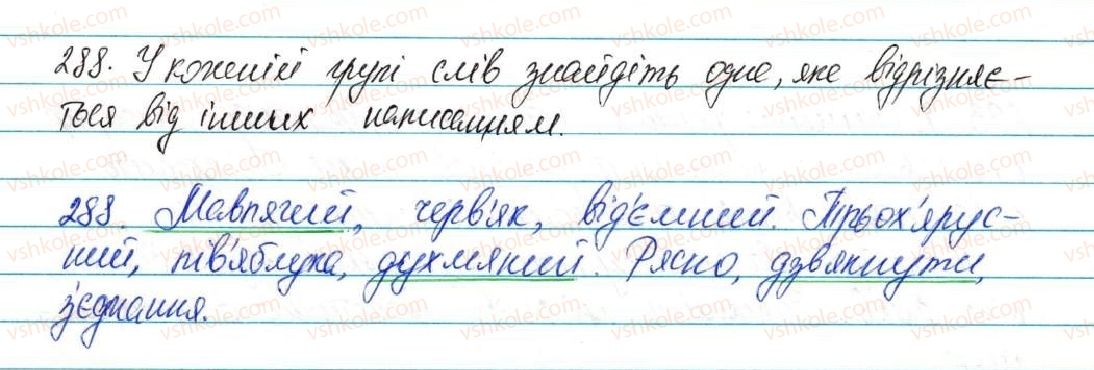 288. У кожній групі слів знайдіть одне, яке відрізняє-
ться від інших написанням.
288. Мавпячий, черв'як, від'ємний. Трьох'ярус-
ний, пів'яблука, духмяний. Рясно, дзвякнути,
з'єднання.